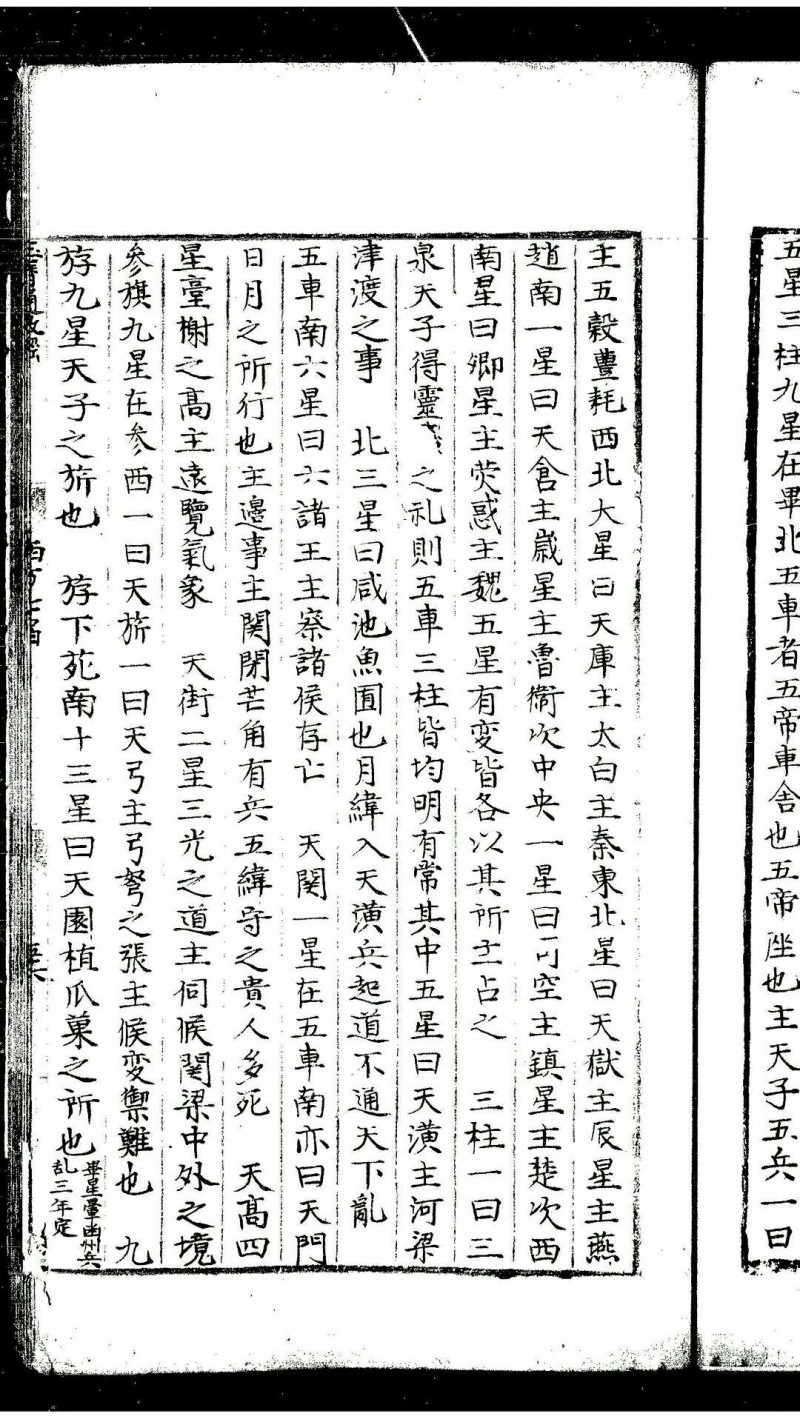 五星三柱九星在畢北五車者五帝車舍也五帝㘴也主天子五兵一曰
主五穀豊耗西北大星曰天庫主太白主秦東北星曰天獄主辰星主燕
趙南一星曰天倉主歲星主魯衛次中央一星曰司空主鎮星主楚次西
南星曰卿星主熒惑主魏五星有変皆各以其所主占之 三柱一曰三
泉天子得靈之礼則五車三柱皆均明有常其中五星曰天潢主河梁
津渡之事 北三星曰咸池魚囿也月緯入天潢兵起道不通天下亂
五車南六星曰六諸王主察諸侯存亡 天関一星在五車南亦曰天門
日月之所行也主邊事主関閉芒角有兵五緯守之貴人多死 天髙四
星臺榭之髙主遠覽氣象 天街二星三光之道主伺候関梁中外之境
参旗九星在参西一曰天旅一曰天弓主弓弩之張主候変禦難也 九
斿九星天子之旂也 斿下苑南十三星曰天園植瓜菓之所也畢星暈幽州兵
乱三年定
西方七宿